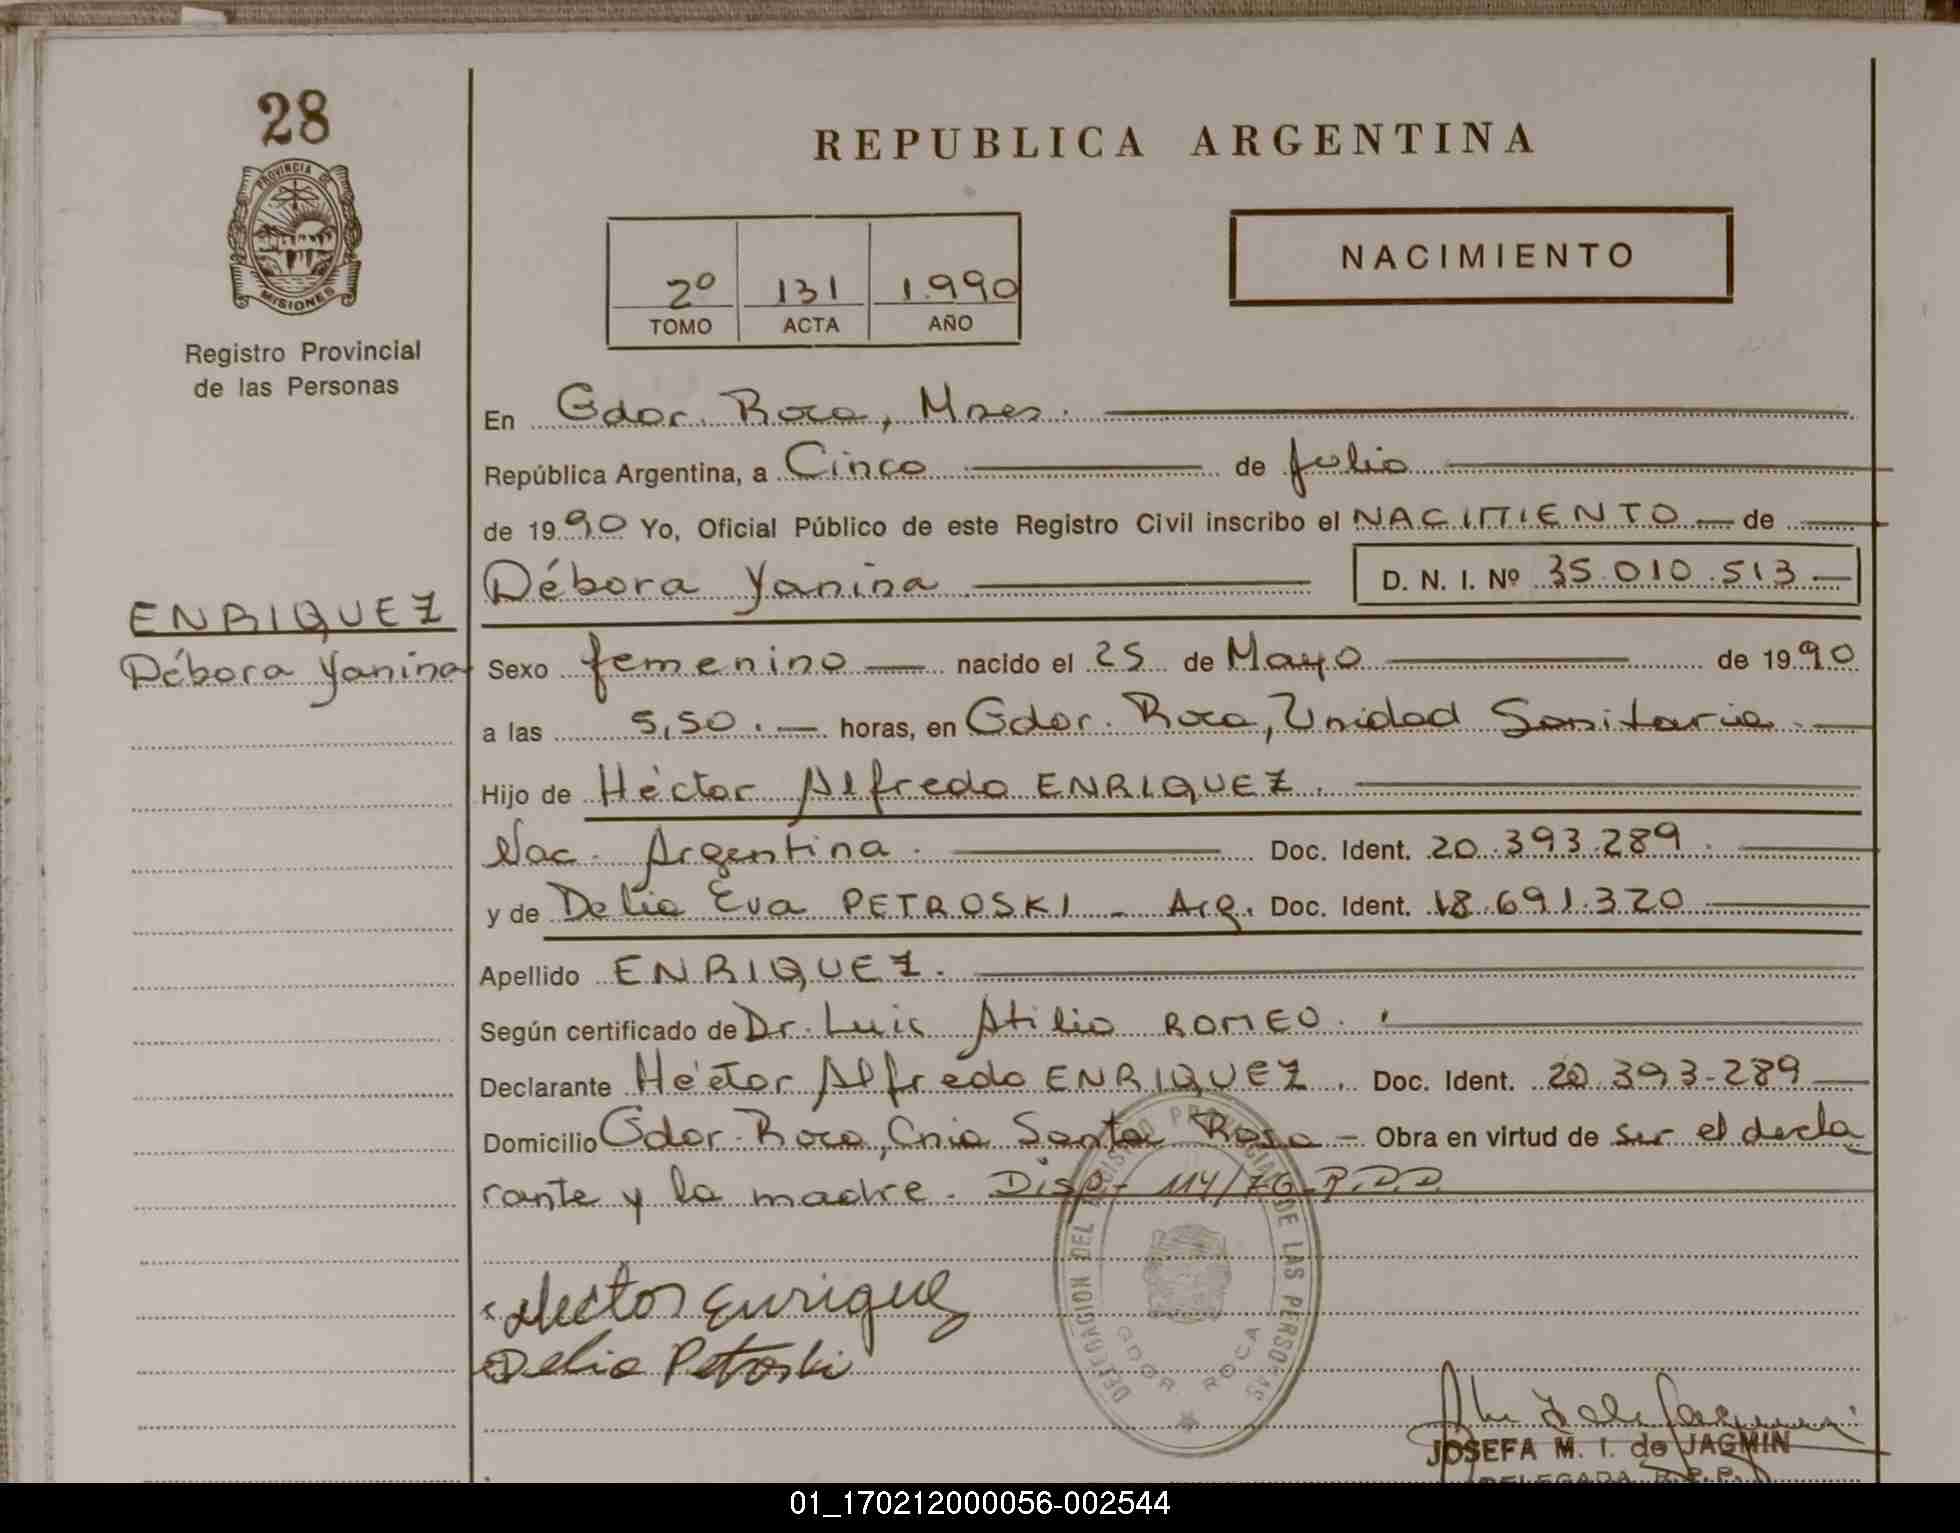 28
PROVINCIA DE
MISIONES
Registro Provincial
de las Personas
REPUBLICA ARGENTINA
2º 131 1.990
TOMO ACTA AÑO
NACIMIENTO
En Gdor. Roca, Mnes.
República Argentina, a Cinco de Julio
de 1990 Yo, Oficial Público de este Registro Civil inscribo el NACIMIENTO de
Débora Yanina D. N. I. Nº 35.010.513
ENRIQUEZ
Débora Yanina
Sexo femenino nacido el 25 de Mayo de 1990
a las 5,50. horas, en Gdor. Roca, Unidad Sanitaria.
Hijo de Héctor Alfredo ENRIQUEZ.
Nac. Argentina. Doc. Ident. 20.393.289.
y de Delia Eva PETROSKI - Arg. Doc. Ident. 18.691.320
Apellido ENRIQUEZ.
Según certificado de Dr. Luis Atilio ROMEO.
Declarante Héctor Alfredo ENRIQUEZ. Doc. Ident. 20.393.289
Domicilio Gdor. Roca, Cnia Santa Rosa - Obra en virtud de ser el decla
rante y la madre. Disp. 114/76 R.P.P.
DELEGACION DEL REGISTRO PROVINCIAL DE LAS PERSONAS
GDOR ROCA
Hector Enriquez
Delia Petroski
JOSEFA M. I. de JAGMIN
DELEGADA R.P.P.
01_170212000056-002544